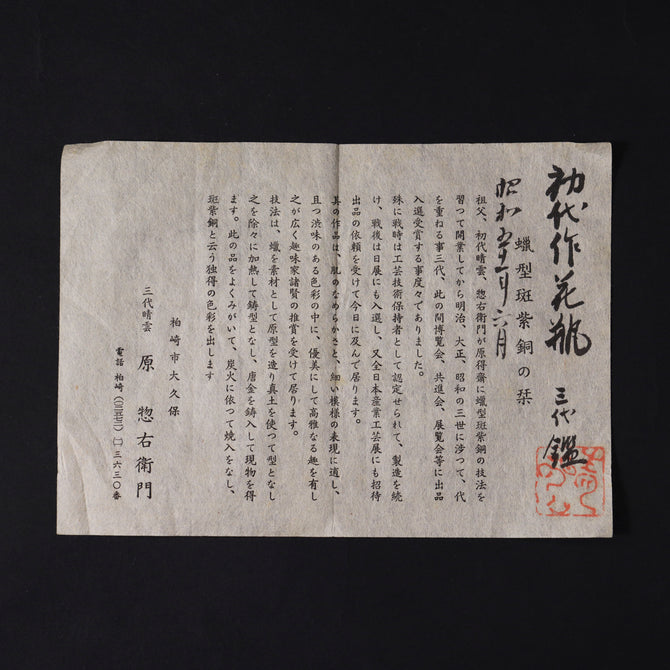 初代作花瓶 三代鑑
昭和五十一年六月
蠟型斑紫銅の栞
祖父、初代晴雲、惣右衛門が原得齋に蠟型斑紫銅の技法を
習つて開業してから明治、大正、昭和の三世に渉つて、代
を重ねる事三代、此の間博覧会、共進会、展覧会等に出品
入選受賞する事度々でありました。
殊に戦時は工芸技術保持者として認定せられて、製造を続
け、戦後は日展にも入選し、又全日本産業工芸展にも招待
出品の依頼を受けて今日に及んで居ります。
其の作品は、肌のなめらかさと、細い模様の表現に適し、
且つ渋味のある色彩の中に、優美にして高雅なる趣を有し
之が広く趣味家諸賢の推賞を受けて居ります。
技法は、蠟を素材として原型を造り真土を使つて型となし
之を除々に加熱して鋳型となし、唐金を鋳入して現物を得
ます。此の品をよくみがいて、炭火に依つて焼入をなし、
斑紫銅と云う独得の色彩を出します
柏崎市大久保
三代晴雲 原惣右衛門
電話 柏崎(〇二五七二)(二)三六三〇番